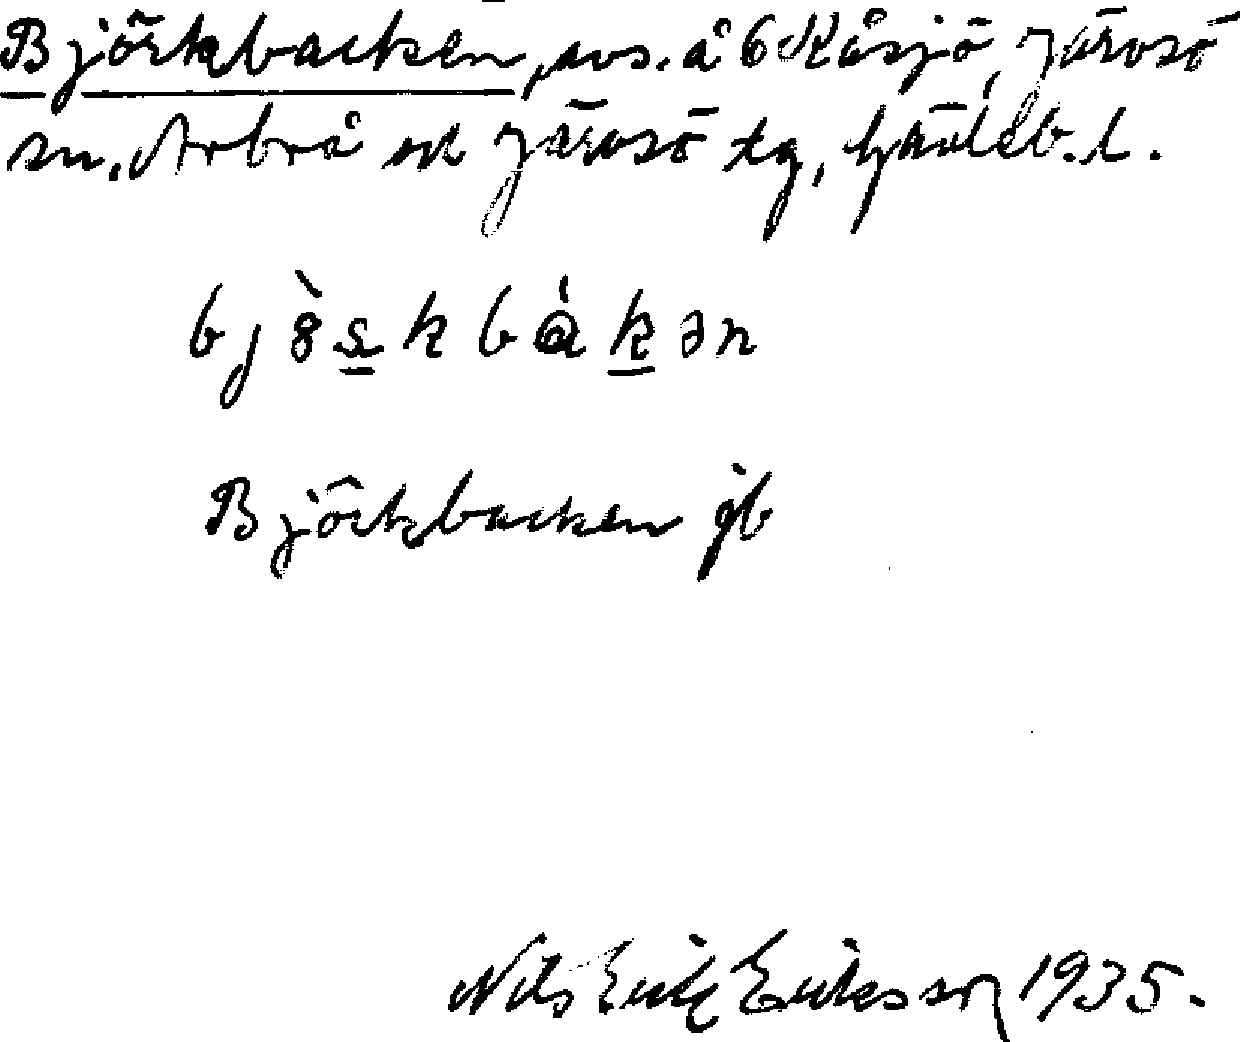 Björkbacken, avs. å 6 Kåsjö, Järvsö
sn, Arbrå och Järvsö tg, Gävleb. l.
bjö̀skbákən
Björkbacken jb
Nils Erik Eriksson 1935.